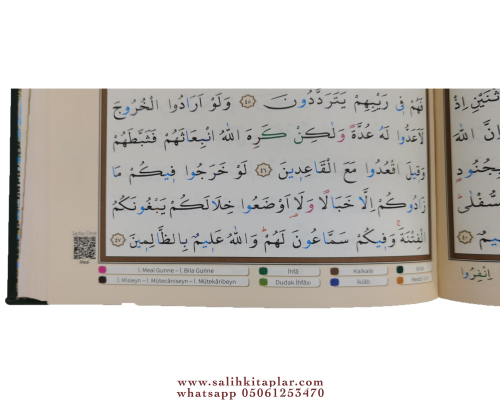 فَهُمْ فِى رَيْبِهِمْ يَتَرَدَّدُونَ ﴿٤٥﴾ وَلَوْ اَرَادُوا الْخُرُوجَ
لَاَعَدُّوا لَهُ عُدَّةً وَلٰكِنْ كَرِهَ اللّٰهُ انْبِعَاثَهُمْ فَثَبَّطَهُمْ
وَق۪يلَ اقْعُدُوا مَعَ الْقَاعِد۪ينَ ﴿٤٦﴾ لَوْ خَرَجُوا ف۪يكُمْ مَا
زَادُوكُمْ اِلَّا خَبَالًا وَلَا۬اَوْضَعُوا خِلَالَكُمْ يَبْغُونَكُمُ
الْفِتْنَةَۚ وَف۪يكُمْ سَمَّاعُونَ لَهُمْۜ وَاللّٰهُ عَل۪يمٌ بِالظَّالِم۪ينَ ﴿٤٧﴾
İ. Meal Gunne – İ. Bila Gunne
İhfâ
Kalkale
İ. Misleyn – İ. Mütecâniseyn – İ. Mütekâribeyn
Dudak İhfâsı
İklâb
اِذْ
اِنَّ اللّٰهَ
انْفِرُوا
www.salihkitaplar.com
whatsapp 05061253470